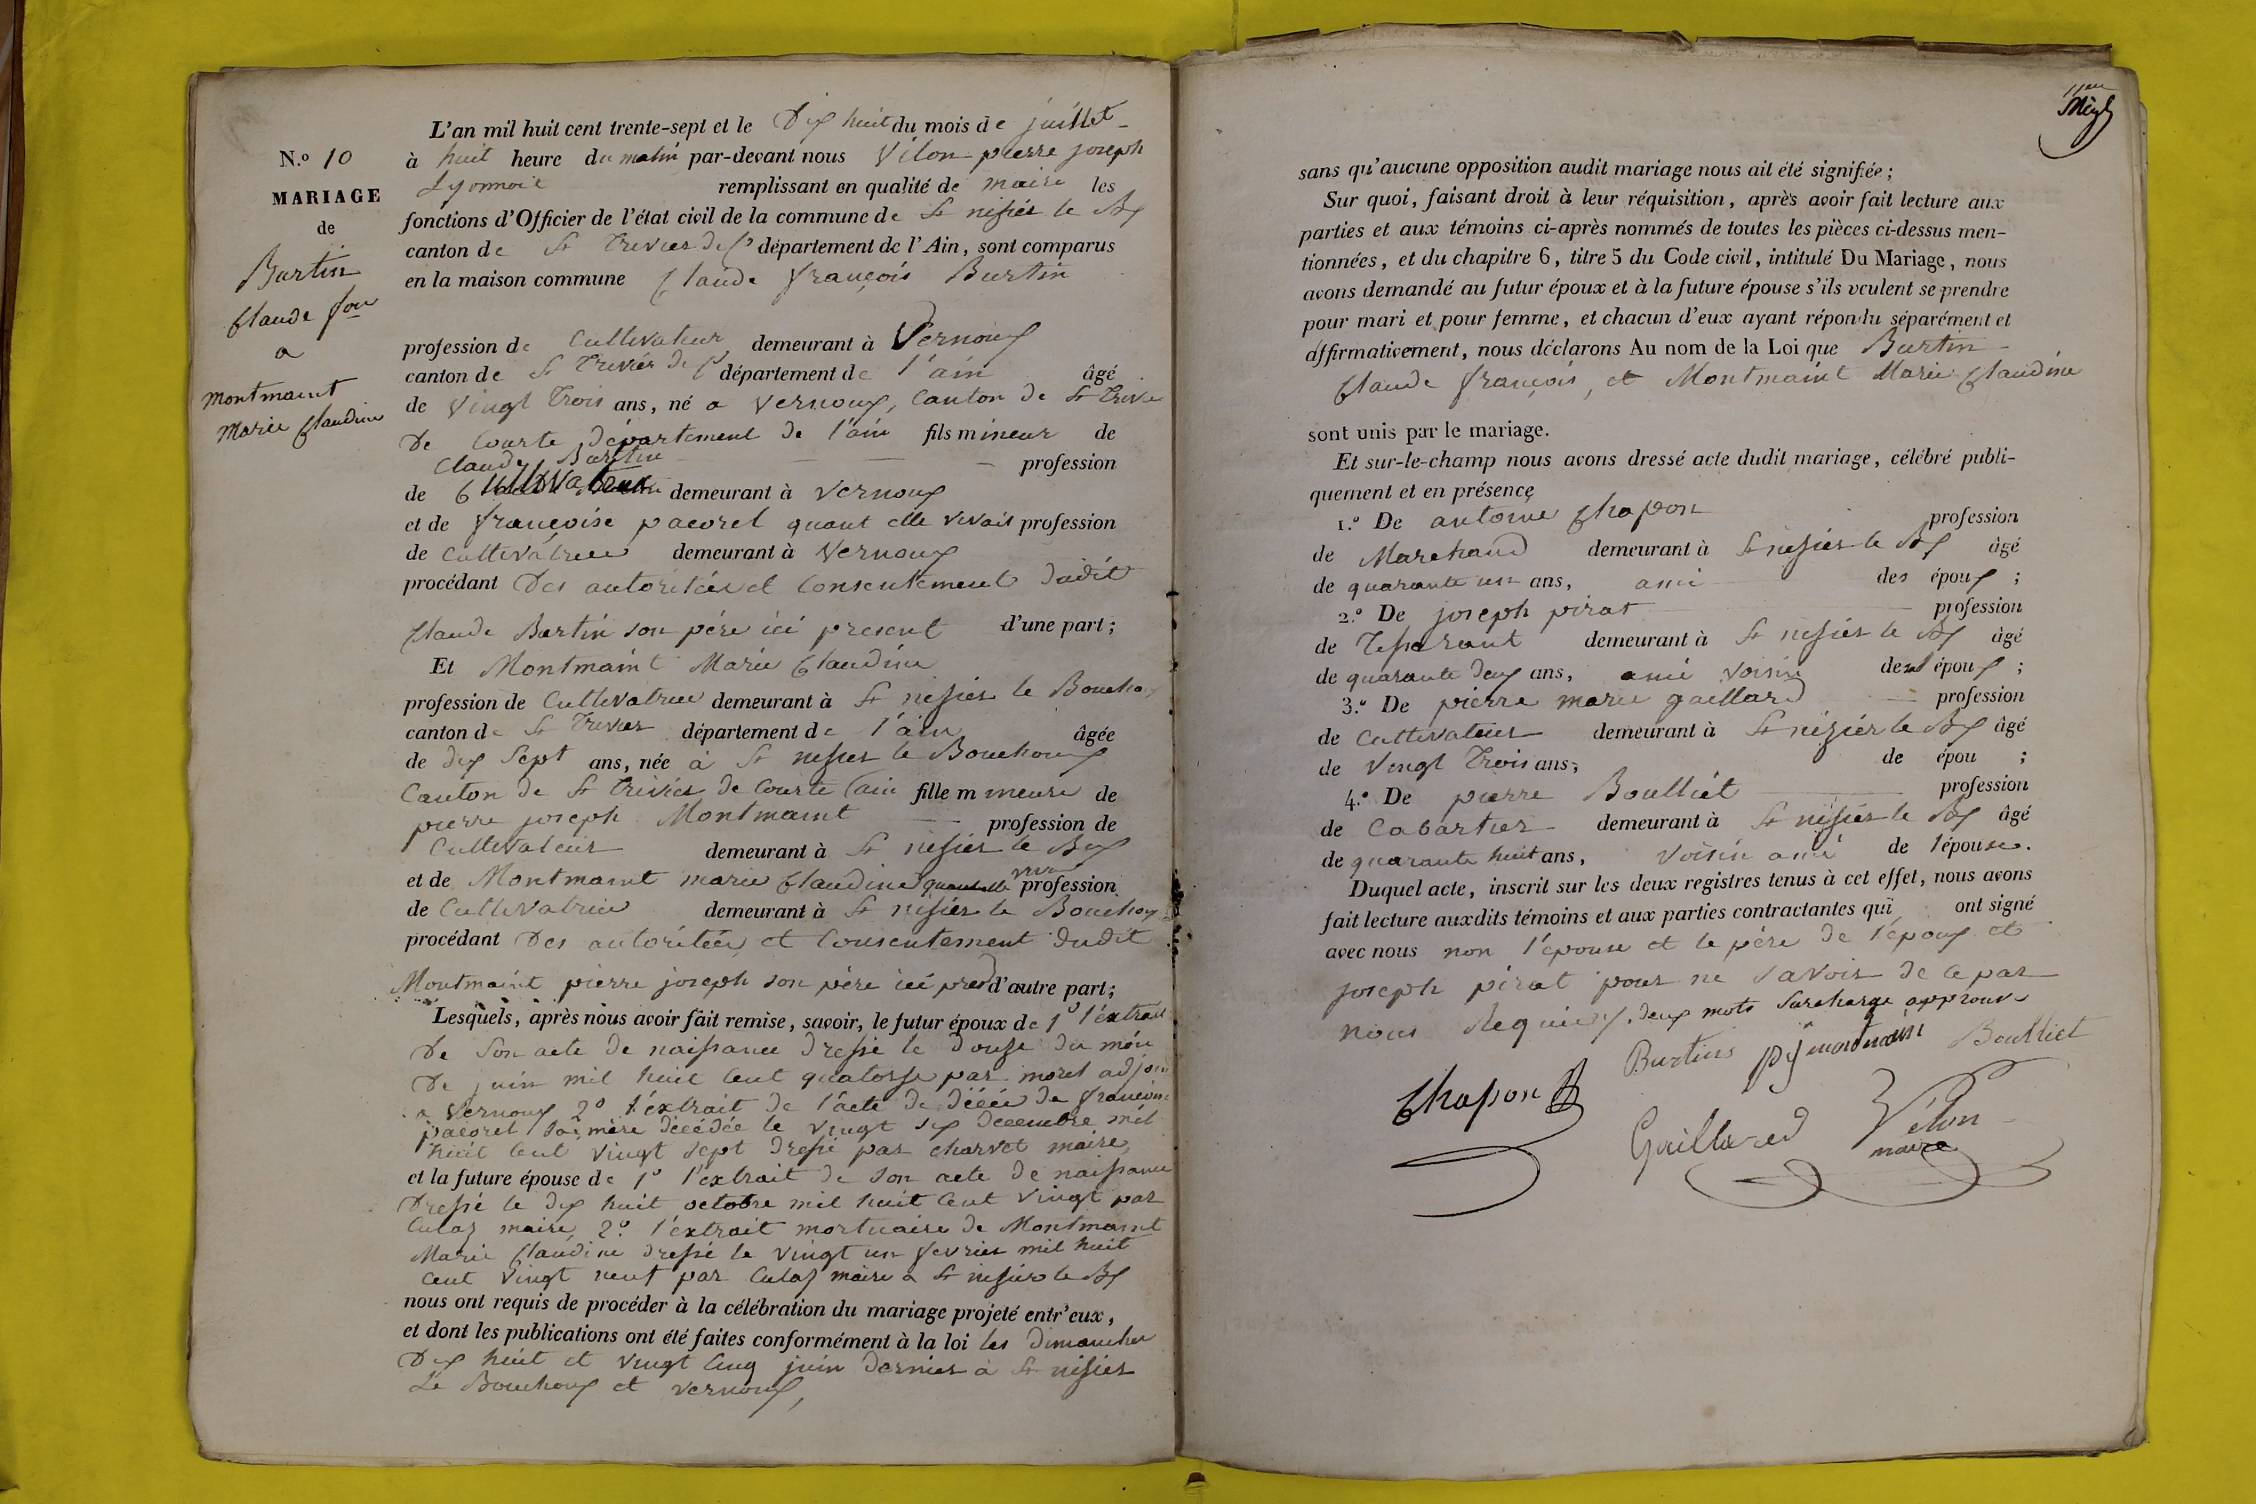 N.º 10
MARIAGE
de
Burtin
Claude fois
a
montmaint
marie Claudine
L'an mil huit cent trente-sept et le Dix huit du mois de juillet
à huit heure du matin par-devant nous Vélon pierre joseph
Lyonnois remplissant en qualité de maire les
fonctions d'Officier de l'état civil de la commune de St nisiés le Bx
canton de St Trivier de C département de l'Ain, sont comparus
en la maison commune Claude françois Burtin
profession de Cultivateur demeurant à Vernoux
canton de St Triviér de C département de l'ain âgé
de Vingt Trois ans, né a Vernoux, Canton de St Trivié
De Courte, département de l'ain fils mineur de
Claude Burtin profession
de Cultivateur demeurant à Vernoux
et de françoise pacorel quant elle vivait profession
de Cultivatrice demeurant à Vernoux
procédant Des autoritées et Consentement dudit
Claude Burtin son pére ici present d'une part ;
Et Montmaint Marie Claudine
profession de Cultivatrice demeurant à St nisiés le Boucho
canton de St Trivier département de l'ain âgée
de dix Sept ans, née à St nisies le Bouchoux
Canton de St Triviés de Courte ain fille mineure de
pierre joseph Montmaint profession de
Cultivateur demeurant à St nisiés le Bux
et de Montmaint marie Claudine quant elle vivai profession
de Cultivatrice demeurant à St nisiés le Bouchoux
procédant Des autoritées et Consentement dudit
Montmaint pierre joseph son pére ici pres d'autre part ;
Lesquels, après nous avoir fait remise, savoir, le futur époux de 1º l'éxtrait
De Son acte de naissance dressé le douze du mois
De juin mil huit Cent quatorze par morel adjoin
a Vernoux 2º l'éxtrait de l'acte de décée de françoise
pacorel sa mère décédée le vingt six decembre mil
huit Cent vingt sept dressé par charvet maire,
et la future épouse de 1º l'extrait de son acte de naissance
Dressé le dix huit octobre mil huit Cent vingt par
Culas maire, 2º. l'extrait mortuaire de Montmaint
Marie Claudine dressé le vingt un fevrier mil huit
Cent vingt neuf par Culas maire a St nisiér le Bx
nous ont requis de procéder à la célébration du mariage projeté entr'eux,
et dont les publications ont été faites conformément à la loi les dimanches
Dix huit et vingt Cinq juin dernier à St nisiés
Le Bouchoux et vernoux,
sans qu'aucune opposition audit mariage nous ait été signifiée ;
Sur quoi, faisant droit à leur réquisition, après avoir fait lecture aux
parties et aux témoins ci-après nommés de toutes les pièces ci-dessus men-
tionnées, et du chapitre 6, titre 5 du Code civil, intitulé Du Mariage, nous
avons demandé au futur époux et à la future épouse s'ils veulent se prendre
pour mari et pour femme, et chacun d'eux ayant répondu séparément et
affirmativement, nous déclarons Au nom de la Loi que Burtin
Claude françois, et Montmaint Marie Claudine
sont unis par le mariage.
Et sur-le-champ nous avons dressé acte dudit mariage, célébré publi-
quement et en présence
1.º De antoine Chapon profession
de Marchand demeurant à St nisiés le Bx âgé
de quarante un ans, ami des époux ;
2.º De joseph pirat profession
de Tisserant demeurant à St nisiés le Bx âgé
de quarante deux ans, ami voisin des époux ;
3.º De pierre marie gaillard profession
de Cultivateur demeurant à St niziér le Bx âgé
de Vingt Trois ans, de épou ;
4.º De pierre Boulliet profession
de Cabartier demeurant à St nisiér le Bx âgé
de quarante huit ans, voisin ami de l'épouse.
Duquel acte, inscrit sur les deux registres tenus à cet effet, nous avons
fait lecture auxdits témoins et aux parties contractantes qui ont signé
avec nous non l'épouse et le pére de l'époux et
joseph pirat pour ne savoir de ce par
nous Requiex. deux mots Surcharge approuve
Burtin pj montmaint Boulliet
Chapon
Gaillard Vélon
maire